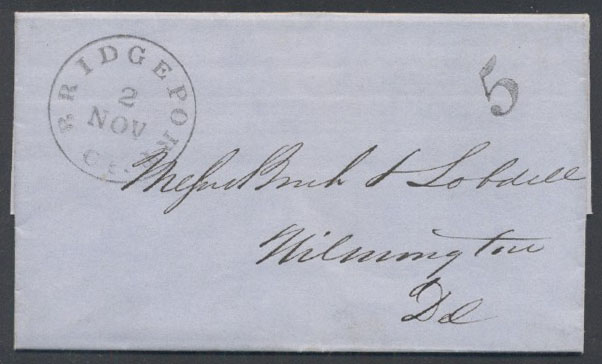 BRIDGEPORT
2
NOV
Ct.
5
Bush & Lobdell
Wilmington
Del